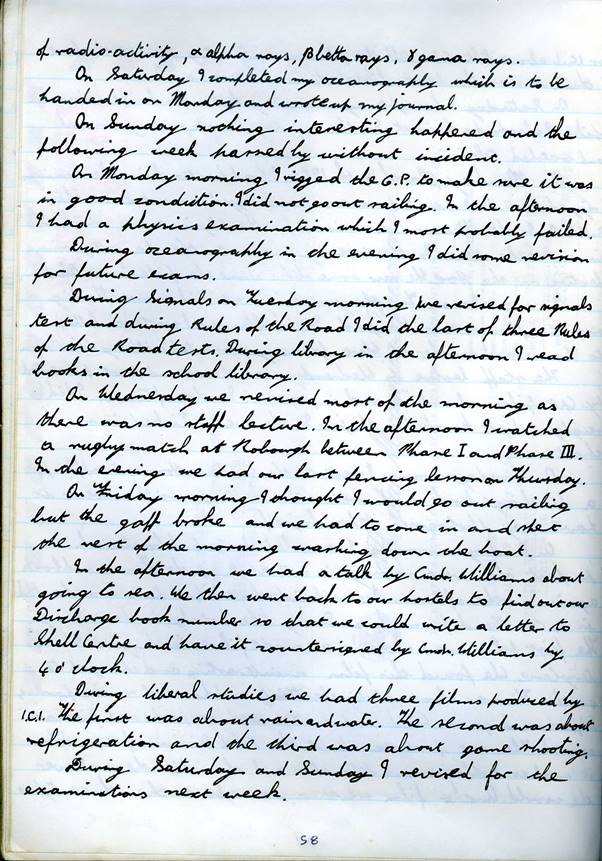 of radio-activity, α alpha rays, β betta rays, γ gama rays.
On Saturday I completed my oceanography which is to be
handed in on Monday and wrote up my journal.
On Sunday nothing interesting happened and the
following week passed by without incident.
On Monday morning I rigged the G.P. to make sure it was
in good condition. I did not go out sailing. In the afternoon
I had a physics examination which I most probably failed.
During oceanography in the evening I did some revision
for future exams.
During Signals on Tuesday morning we revised for signals
test and during Rules of the Road I did the last of three Rules
of the Road tests. During library in the afternoon I read
books in the school library.
On Wednesday we revised most of the morning as
there was no staff lecture. In the afternoon I watched
a rugby match at Roborough between Phase I and Phase III.
In the evening we had our last fencing lesson on Thursday.
On Friday morning I thought I would go out sailing
but the gaff broke and we had to come in and spet
the rest of the morning washing down the boat.
In the afternoon we had a talk by Cmdr. Williams about
going to sea. We then went back to our hostels to find out our
Discharge book number so that we could write a letter to
Shell Centre and have it countersigned by Cmdr. Williams by
4 o'clock.
During liberal studies we had three films produced by
I.C.I. The first was about rain and water. The second was about
refrigeration and the third was about game shooting.
During Saturday and Sunday I revised for the
examinations next week.
58